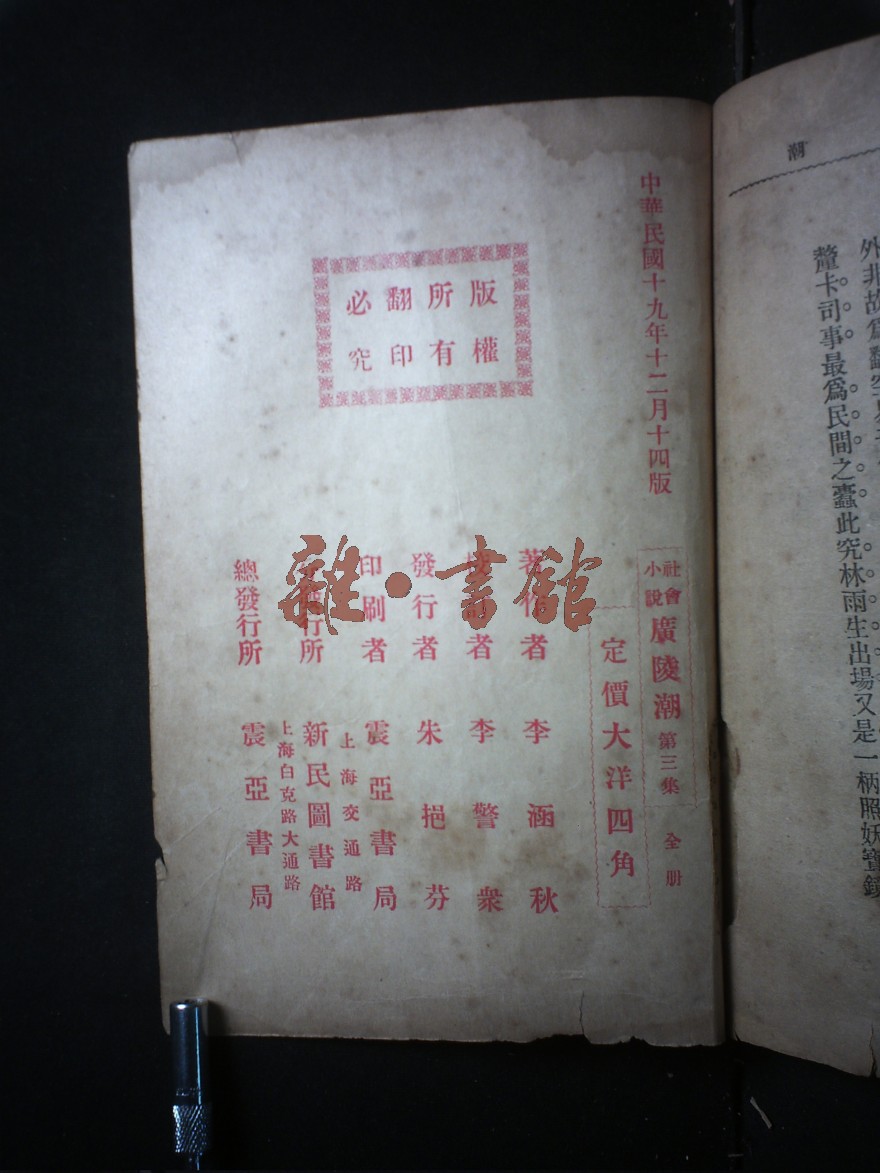 潮
外非故爲翻空
釐卡司事最爲民間之蠹此究林雨生出場又是一柄照妖寶鏡
中華民國十九年十二月十四版
社會小說 廣陵潮 第三集 全册
定價大洋四角
版權
所有
翻印
必究
著作者 李涵秋
者 李警衆
發行者 朱挹芬
印刷者 震亞書局
上海交通路
發行所 新民圖書館
上海白克路大通路
總發行所 震亞書局
雜·書館